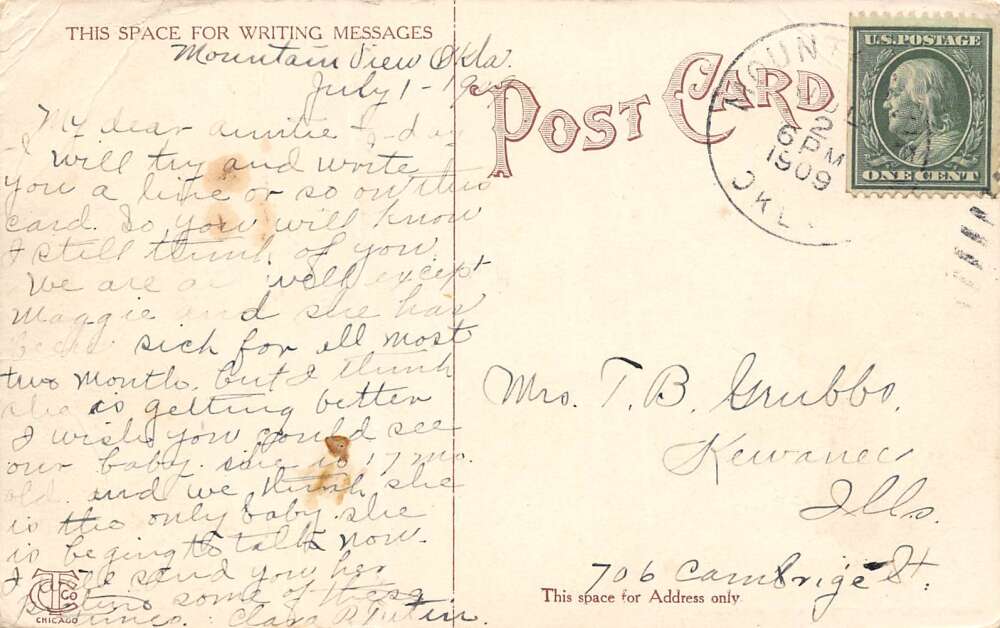 THIS SPACE FOR WRITING MESSAGES
Mountain View Okla.
July 1 - 1909
My dear auntie to-day
I will try and write
you a line or so on this
card. So you will know
I still think of you.
We are all well except
Maggie and she has
been sick for all most
two month. but I think
she is getting better
I wish you could see
our baby. she is 17 mo.
old. and we think she
is the only baby. she
is beging to talk now.
I send you her
some of these
times. Clara
CTCo
CHICAGO
POST CARD
MOUNT
2
6 PM
1909
OKLA
U.S. POSTAGE
ONE CENT
Mrs. T. B. Grubbs.
Kewanee
Ills.
706 Cambrige St.
This space for Address only